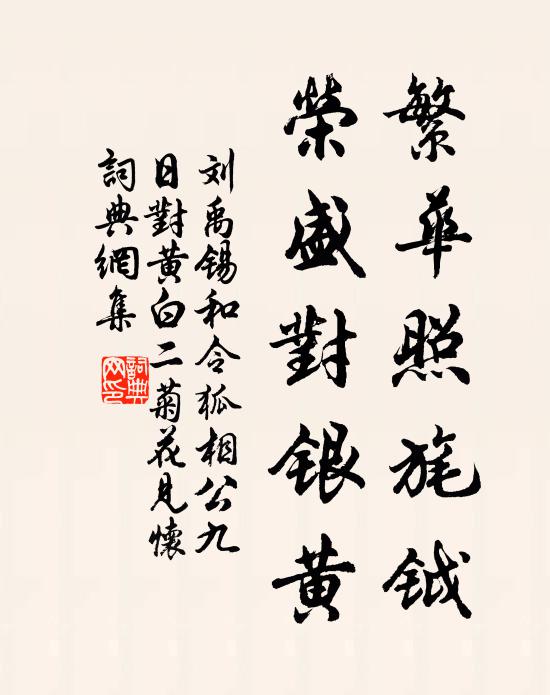 繁華照旄鉞
榮盛對銀黃
刘禹锡和令狐相公九
日對黃白二菊花見懷
詞典網集
詞典网印